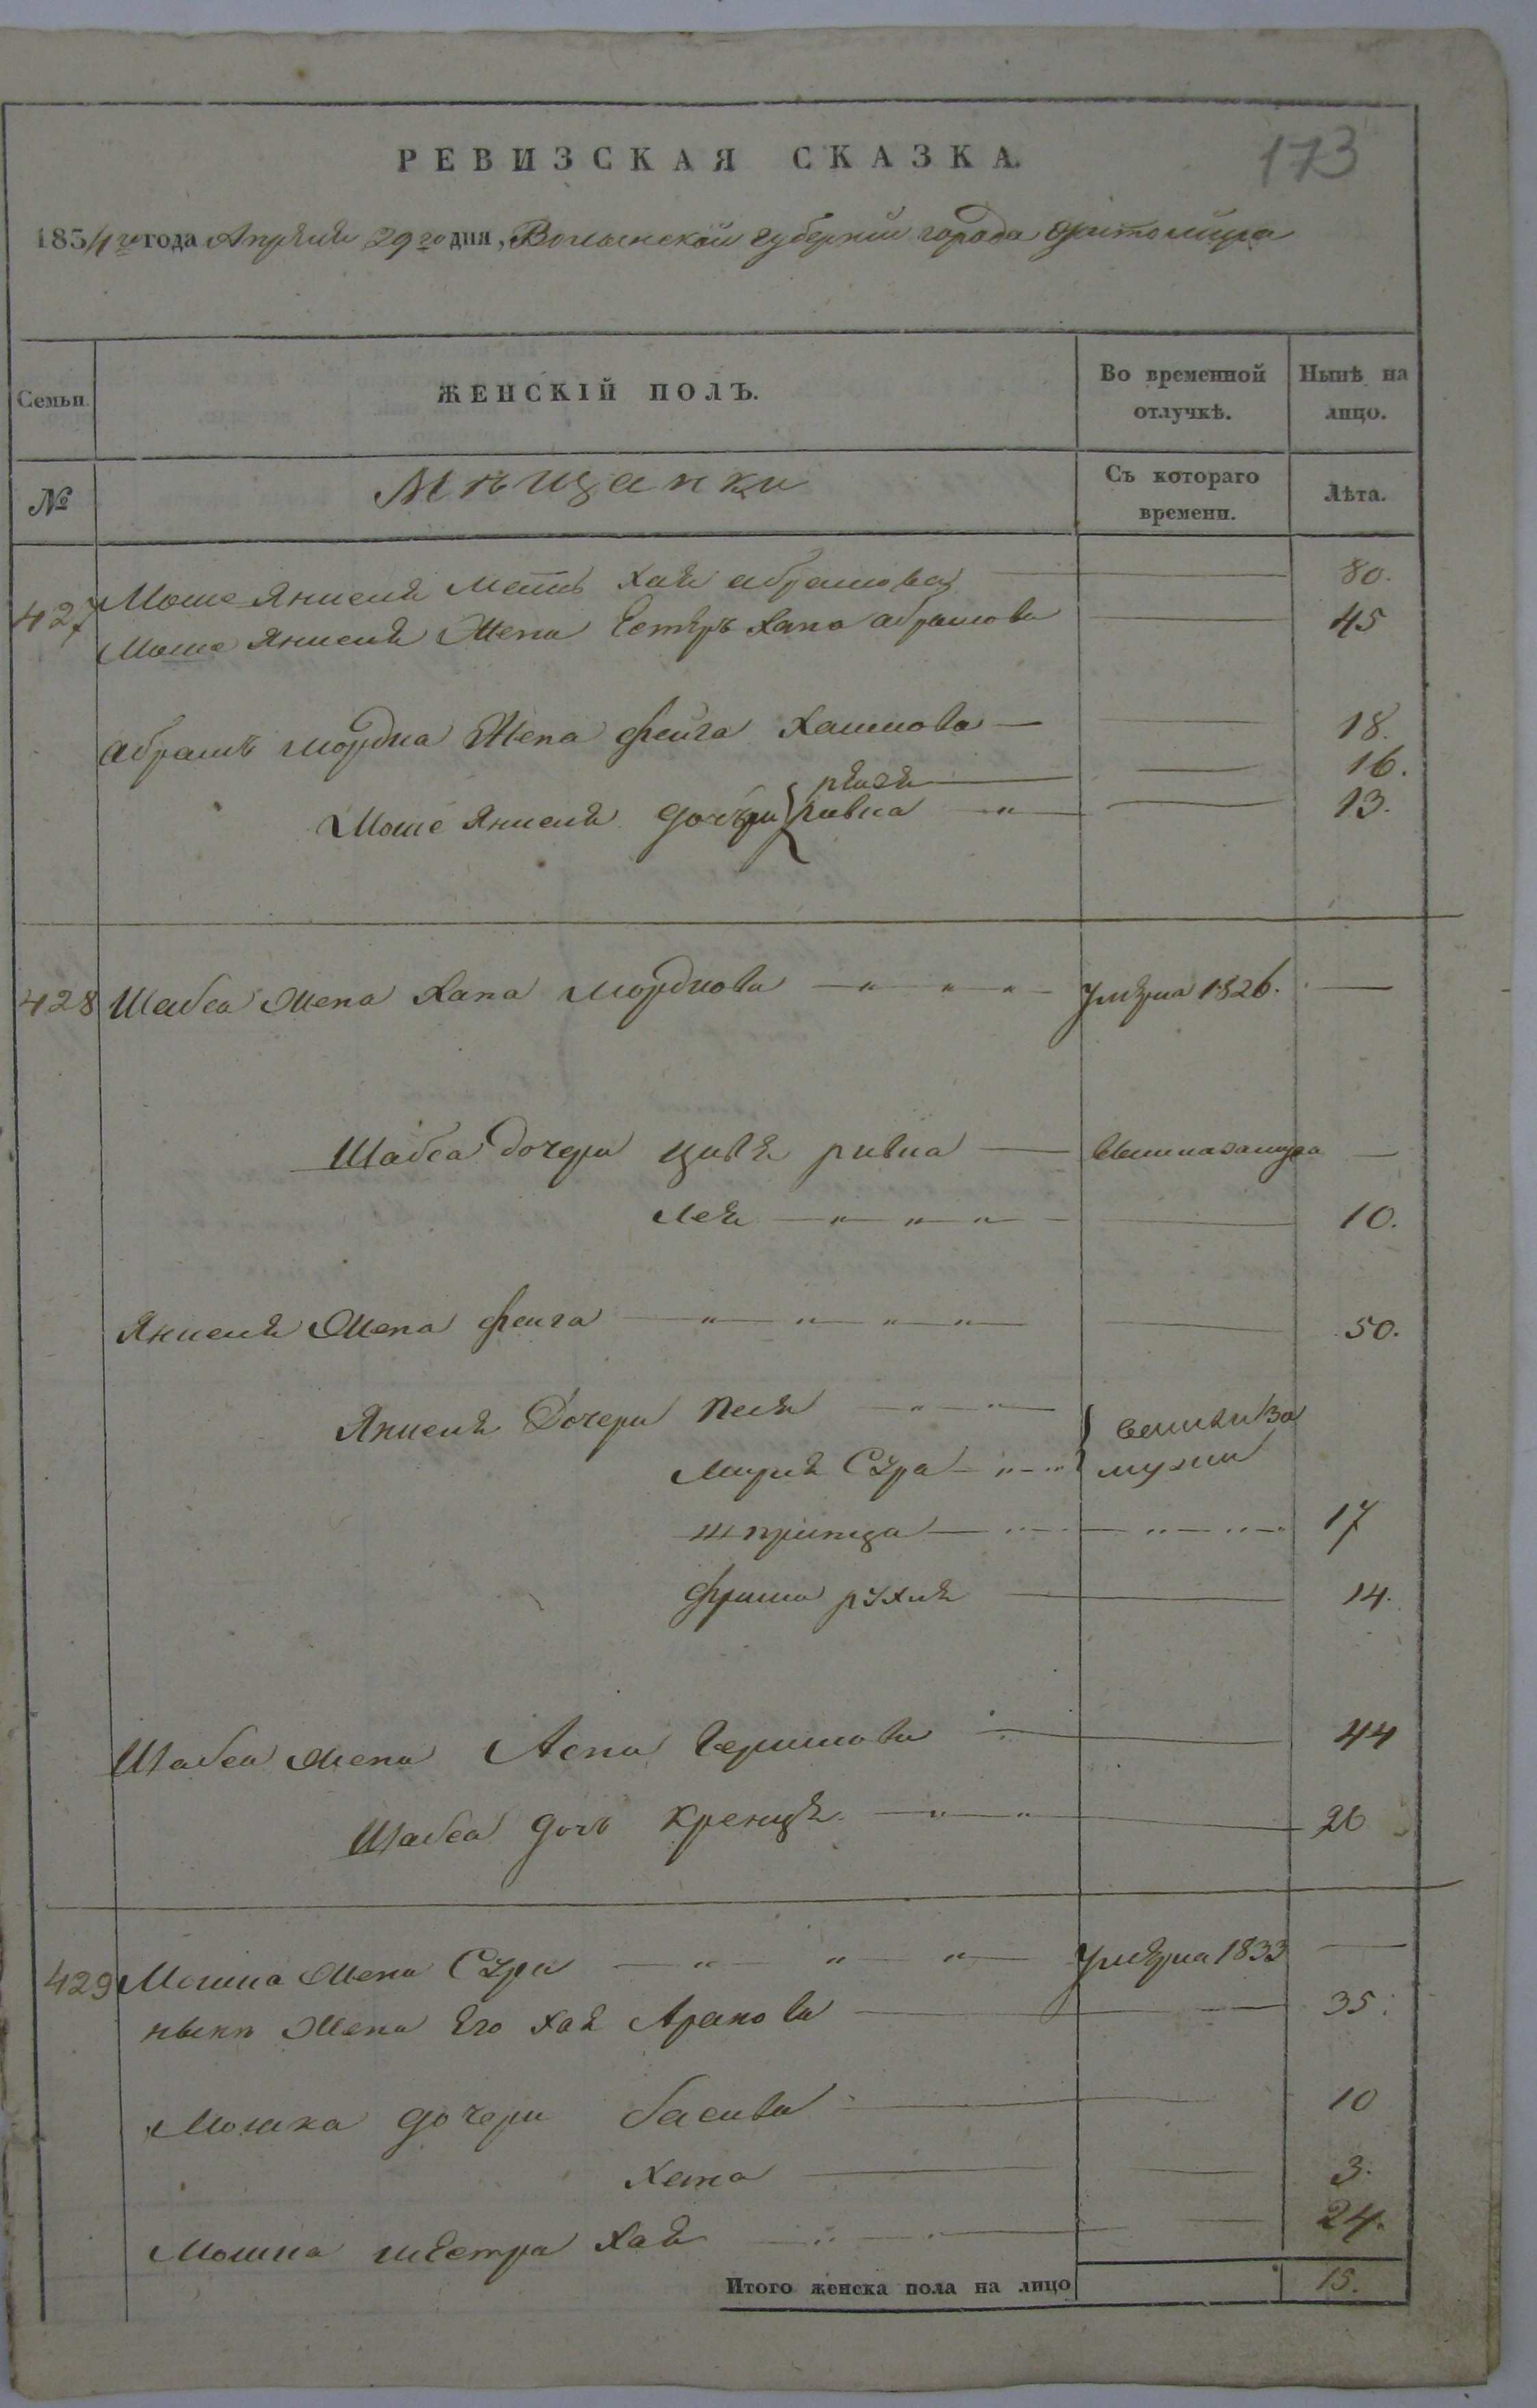 РЕВИЗСКАЯ СКАЗКА.
173
1834го года Апреля 29го дня, Волынской губернии города Житомира
Семьи.
ЖЕНСКІЙ ПОЛЪ.
Во временной отлучкѣ.
Нынѣ на лицо.
№
Мѣщанки
Съ котораго времени.
Лѣта.
427 Мошe Янкеля мать Хая абрамова — 80.
Мошe Янкеля Жена Естеръ Хана абрамова — 45
абрамъ мордка Жена фейга Хаимова — 18.
рейзя — 16.
Мошe Янкеля дочери ривка — " — 13.
428 Шабса Жена Хана мордкова — " " " — умерла 1826. —
Шабса Дочери цивя ривка — вышла замуж —
Лея — " — " — " — 10.
Янкеля Жена фейга — " — " — " — " — 50.
Янкеля Дочери песя — " — " — вышли за
Миряя Сура — " — " мужи
шпринца — " — " — " — 17
фрима рухля — 14.
Шабса жена Асна Бершкова — 44
Шабса дочь Кренця — " — " — 26
429 Мошка Жена Сура — " — " — " — умерла 1833 —
нынѣ Жена Его Хая Аронова — 35.
Мошка дочери басива — 10
Хана — 3.
Мошка сиестра Хая — " — 24.
Итого женска пола на лицо 15.